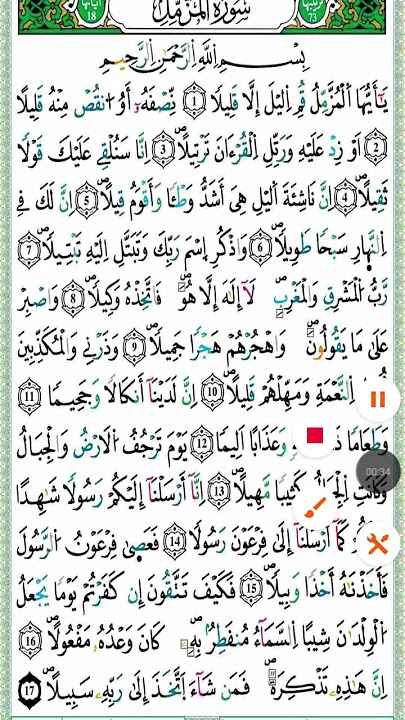 سُورَةُ الْمُزَّمِّل
آياتها 18
73
بِسْمِ اللَّهِ الرَّحْمَٰنِ الرَّحِيمِ
يَا أَيُّهَا الْمُزَّمِّلُ قُمِ اِلَيْلَ إِلَّا قَلِيلًا ۝1 نِّصْفَهُۥٓ أَوُ انْقُصْ مِنْهُ قَلِيلًا
۝2 اَوْ زِدْ عَلَيْهِ وَرَتِّلِ اِلْقُرْءَانَ تَرْتِيلًا ۝3 اِنَّا سَنُلْقِي عَلَيْكَ قَوْلًا
ثَقِيلًا ۝4 اِنَّ نَاشِئَةَ اَليْلِ هِيَ أَشَدُّ وَطْـًٔا وَأَقْوَمُ قِيلًا ۝5 اِنَّ لَكَ فِي
اِلنَّهَارِ سَبْحًا طَوِيلًا ۝6 وَاذْكُرِ اِسْمَ رَبِّكَ وَتَبَتَّلِ اِلَيْهِ تَبْتِيلًا ۝7
رَّبُّ الْمَشْرِقِ وَالْمَغْرِبِ لَآ إِلَٰهَ إِلَّا هُوَ فَاتَّخِذْهُ وَكِيلًا ۝8 وَاصْبِرْ
عَلَىٰ مَا يَقُولُونَ وَاهْجُرْهُمْ هَجْرًا جَمِيلًا ۝9 وَذَرْنِي وَالْمُكَذِّبِينَ
اِلنَّعْمَةِ وَمَهِّلْهُمْ قَلِيلًا ۝10 اِنَّ لَدَيْنَآ أَنكَالًا وَجَحِيمًا ۝11
وَطَعَامًا وَعَذَابًا اَلِيمًا ۝12 يَوْمَ تَرْجُفُ اُلَارْضُ وَالْجِبَالُ
وَكَانَتِ كَثِيبًا مَّهِيلًا ۝13 اِنَّآ أَرْسَلْنَآ إِلَيْكُمْ رَسُولًا شَٰهِدًا
كَمَآ أَرْسَلْنَآ إِلَىٰ فِرْعَوْنَ رَسُولًا ۝14 فَعَصَىٰ فِرْعَوْنُ الرَّسُولَ
فَأَخَذْنَٰهُ أَخْذًا وَبِيلًا ۝15 فَكَيْفَ تَتَّقُونَ إِن كَفَرْتُمْ يَوْمًا يَجْعَلُ
الْوِلْدَٰنَ شِيبًا اِلسَّمَآءُ مُنفَطِرٌ بِهِۦ كَانَ وَعْدُهُۥ مَفْعُولًا ۝16
اِنَّ هَٰذِهِۦ تَذْكِرَةٌ فَمَن شَآءَ اَتَّخَذَ إِلَىٰ رَبِّهِۦ سَبِيلًا ۝17
00:34